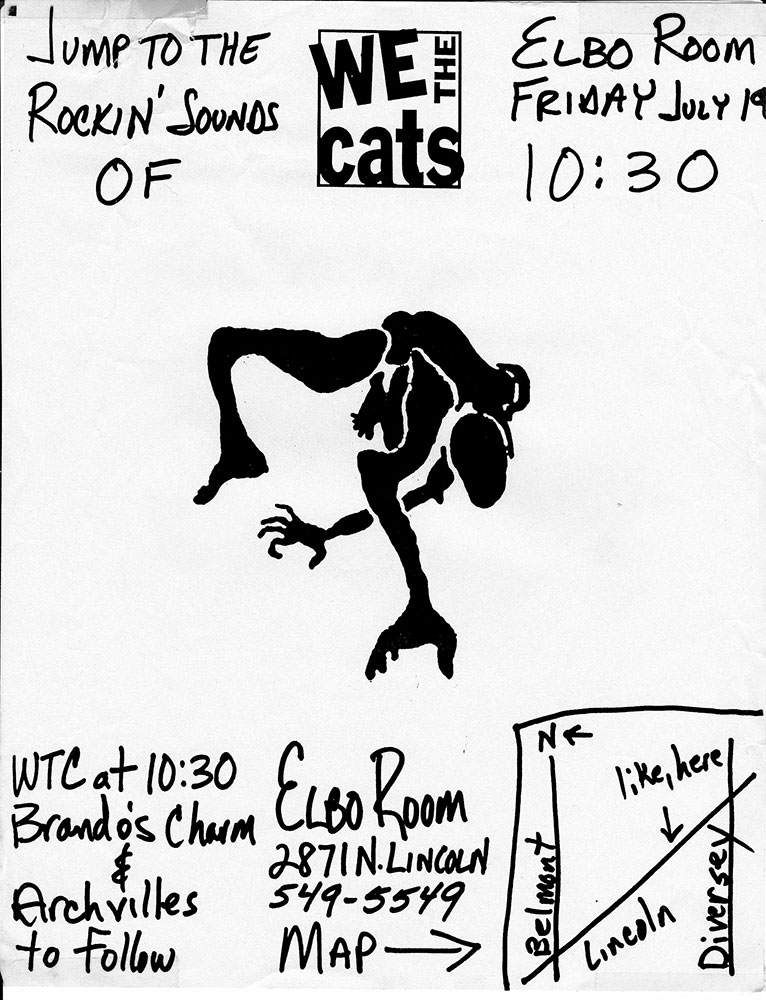 JUMP TO THE
ROCKIN' SOUNDS
OF
WE THE
cats
ELBO ROOM
FRIDAY JULY 19
10:30
WTC at 10:30
Brando's Charm
&
Archvilles
to follow
ELBO ROOM
2871 N. LINCOLN
549-5549
MAP
N
like, here
Belmont
Lincoln
Diversey